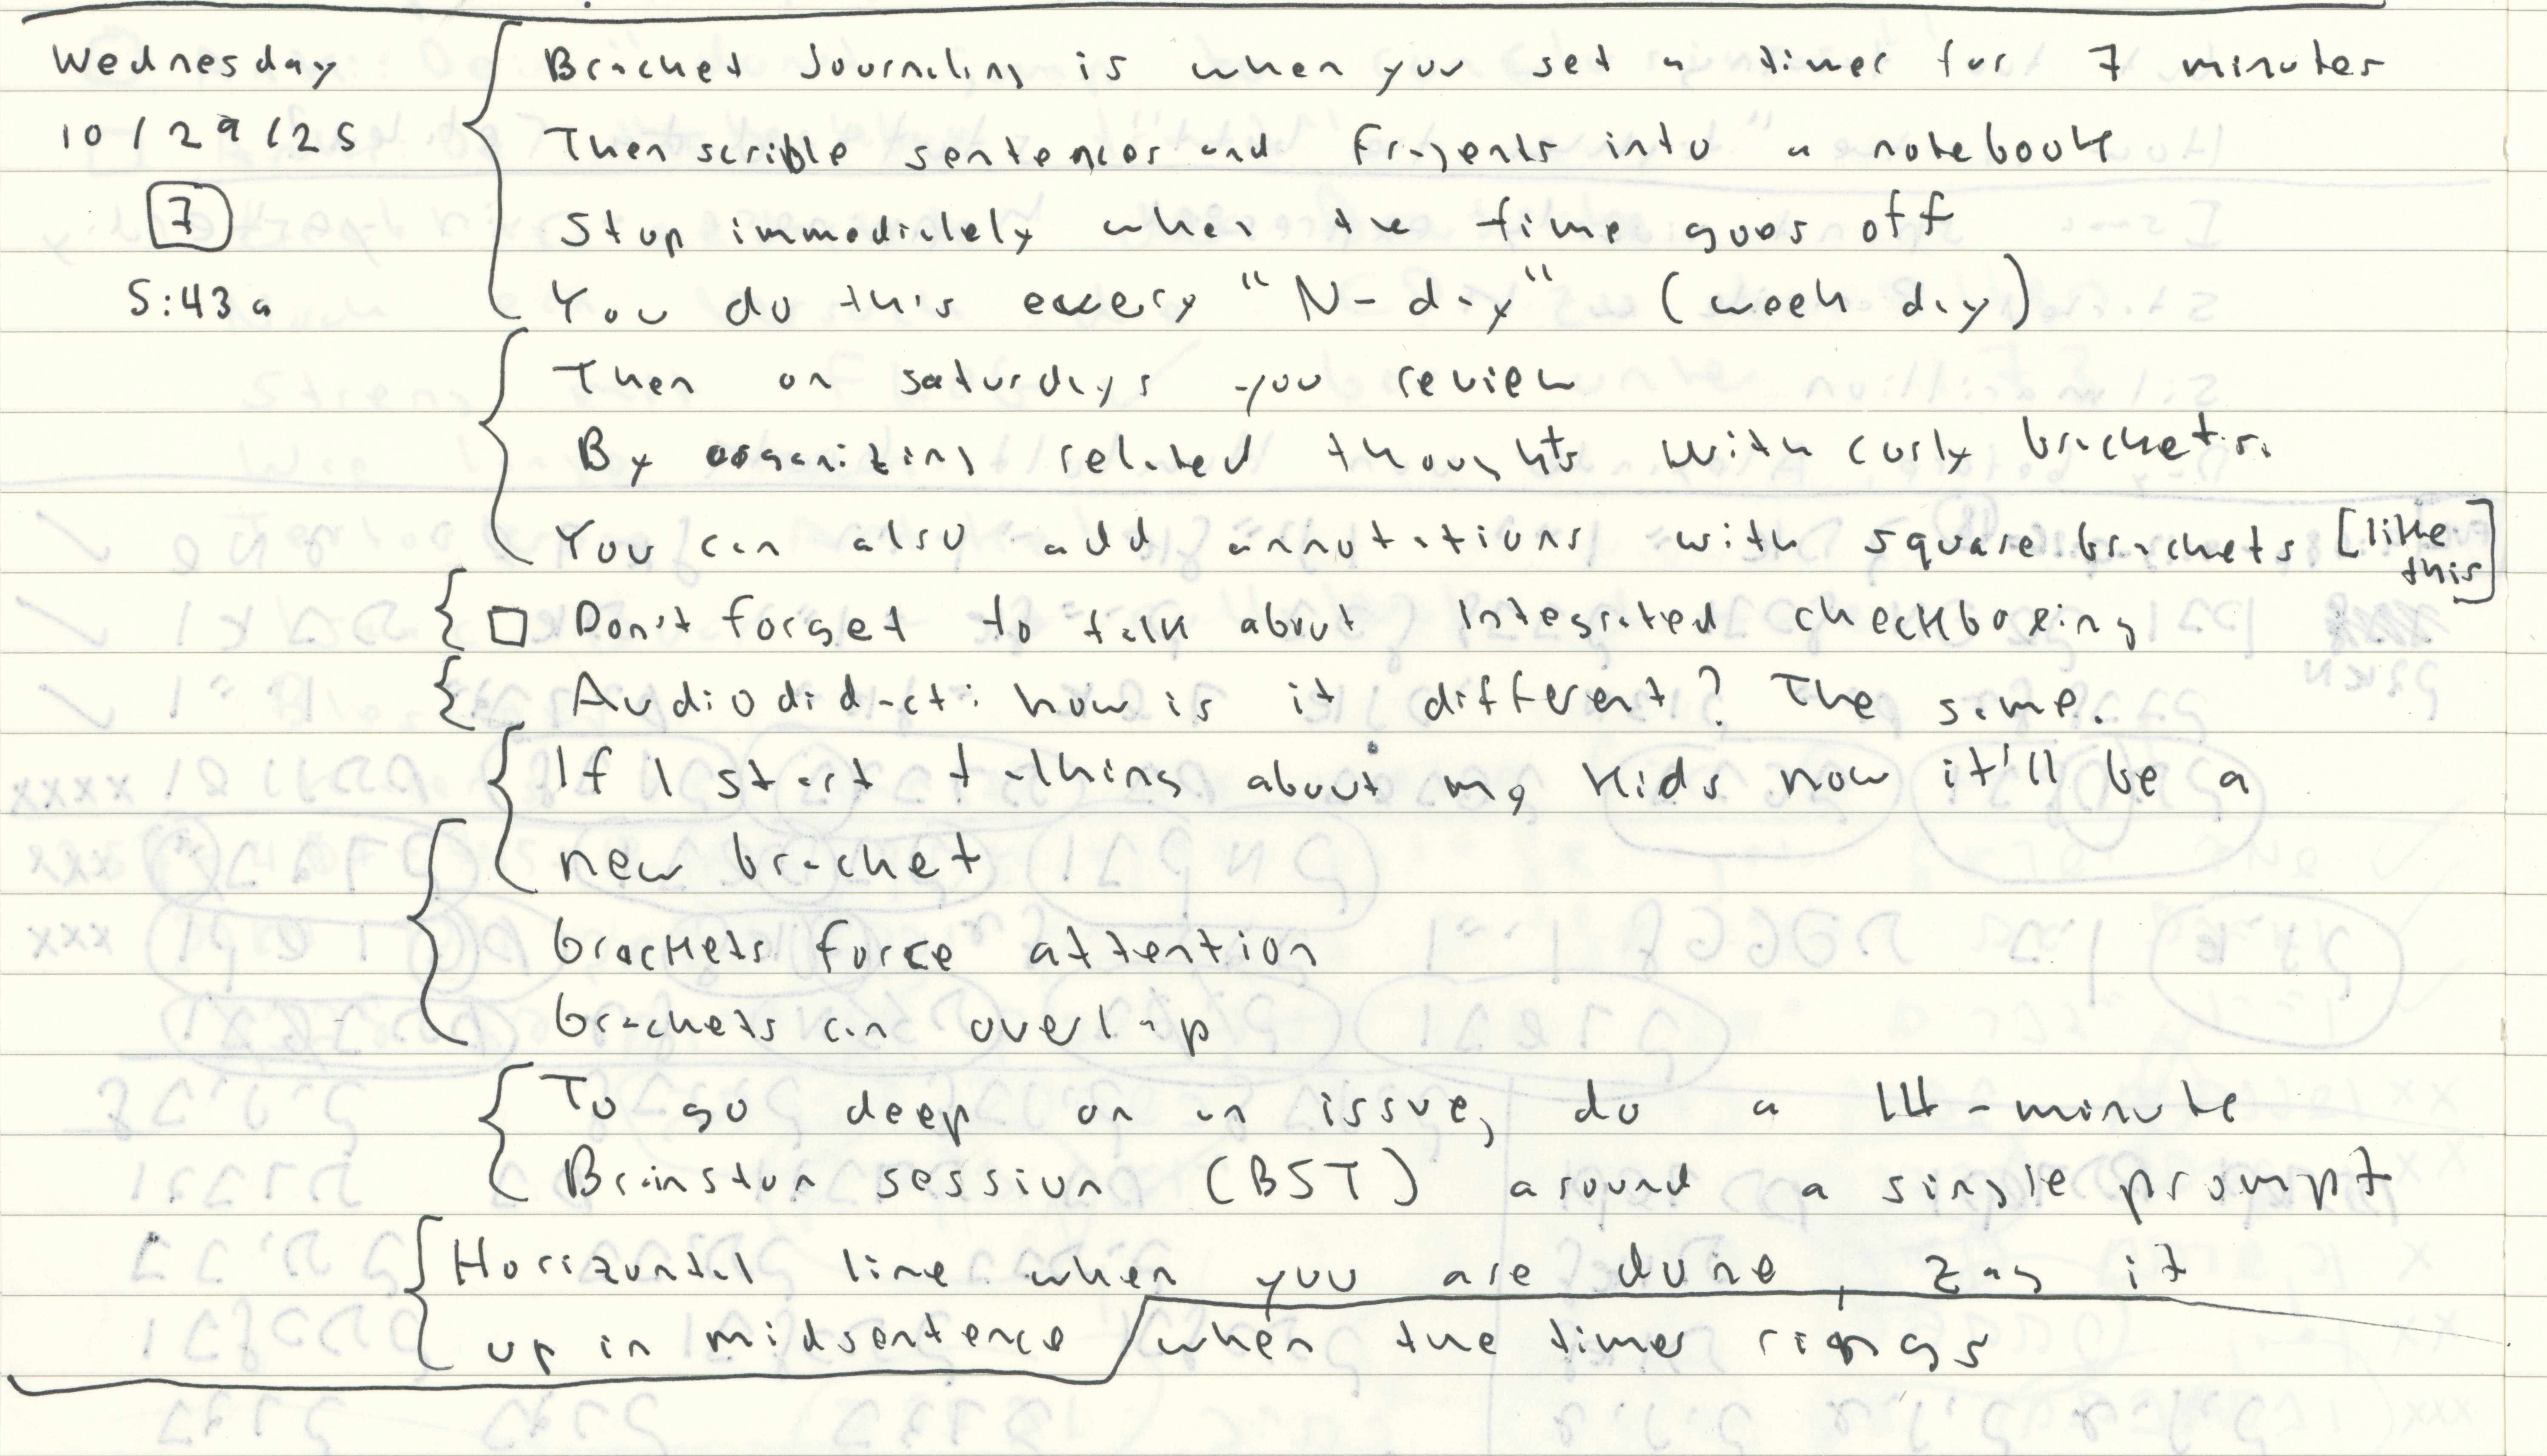 Wednesday
10/29/25
7
5:43a
Bracket Journaling is when you set a timer for 7 minutes
Then scribble sentences and fragents into a notebook
Stop immediately when the time goes off
You do this every "N-day" (week day)
Then on saturdays you review
By organizing related thoughts with curly brackets.
You can also add annotations with square brackets [like this]
Don't forget to talk about Integrated checkboxing
Audiodidact: how is it different? The same.
If I start talking about my kids now it'll be a
new bracket
brackets force attention
brackets can overlap
To go deep on an issue, do a 14-minute
Brainston session (BST) around a single prompt
Horizontal line when you are done, zag it
up in midsentence when the timer rings